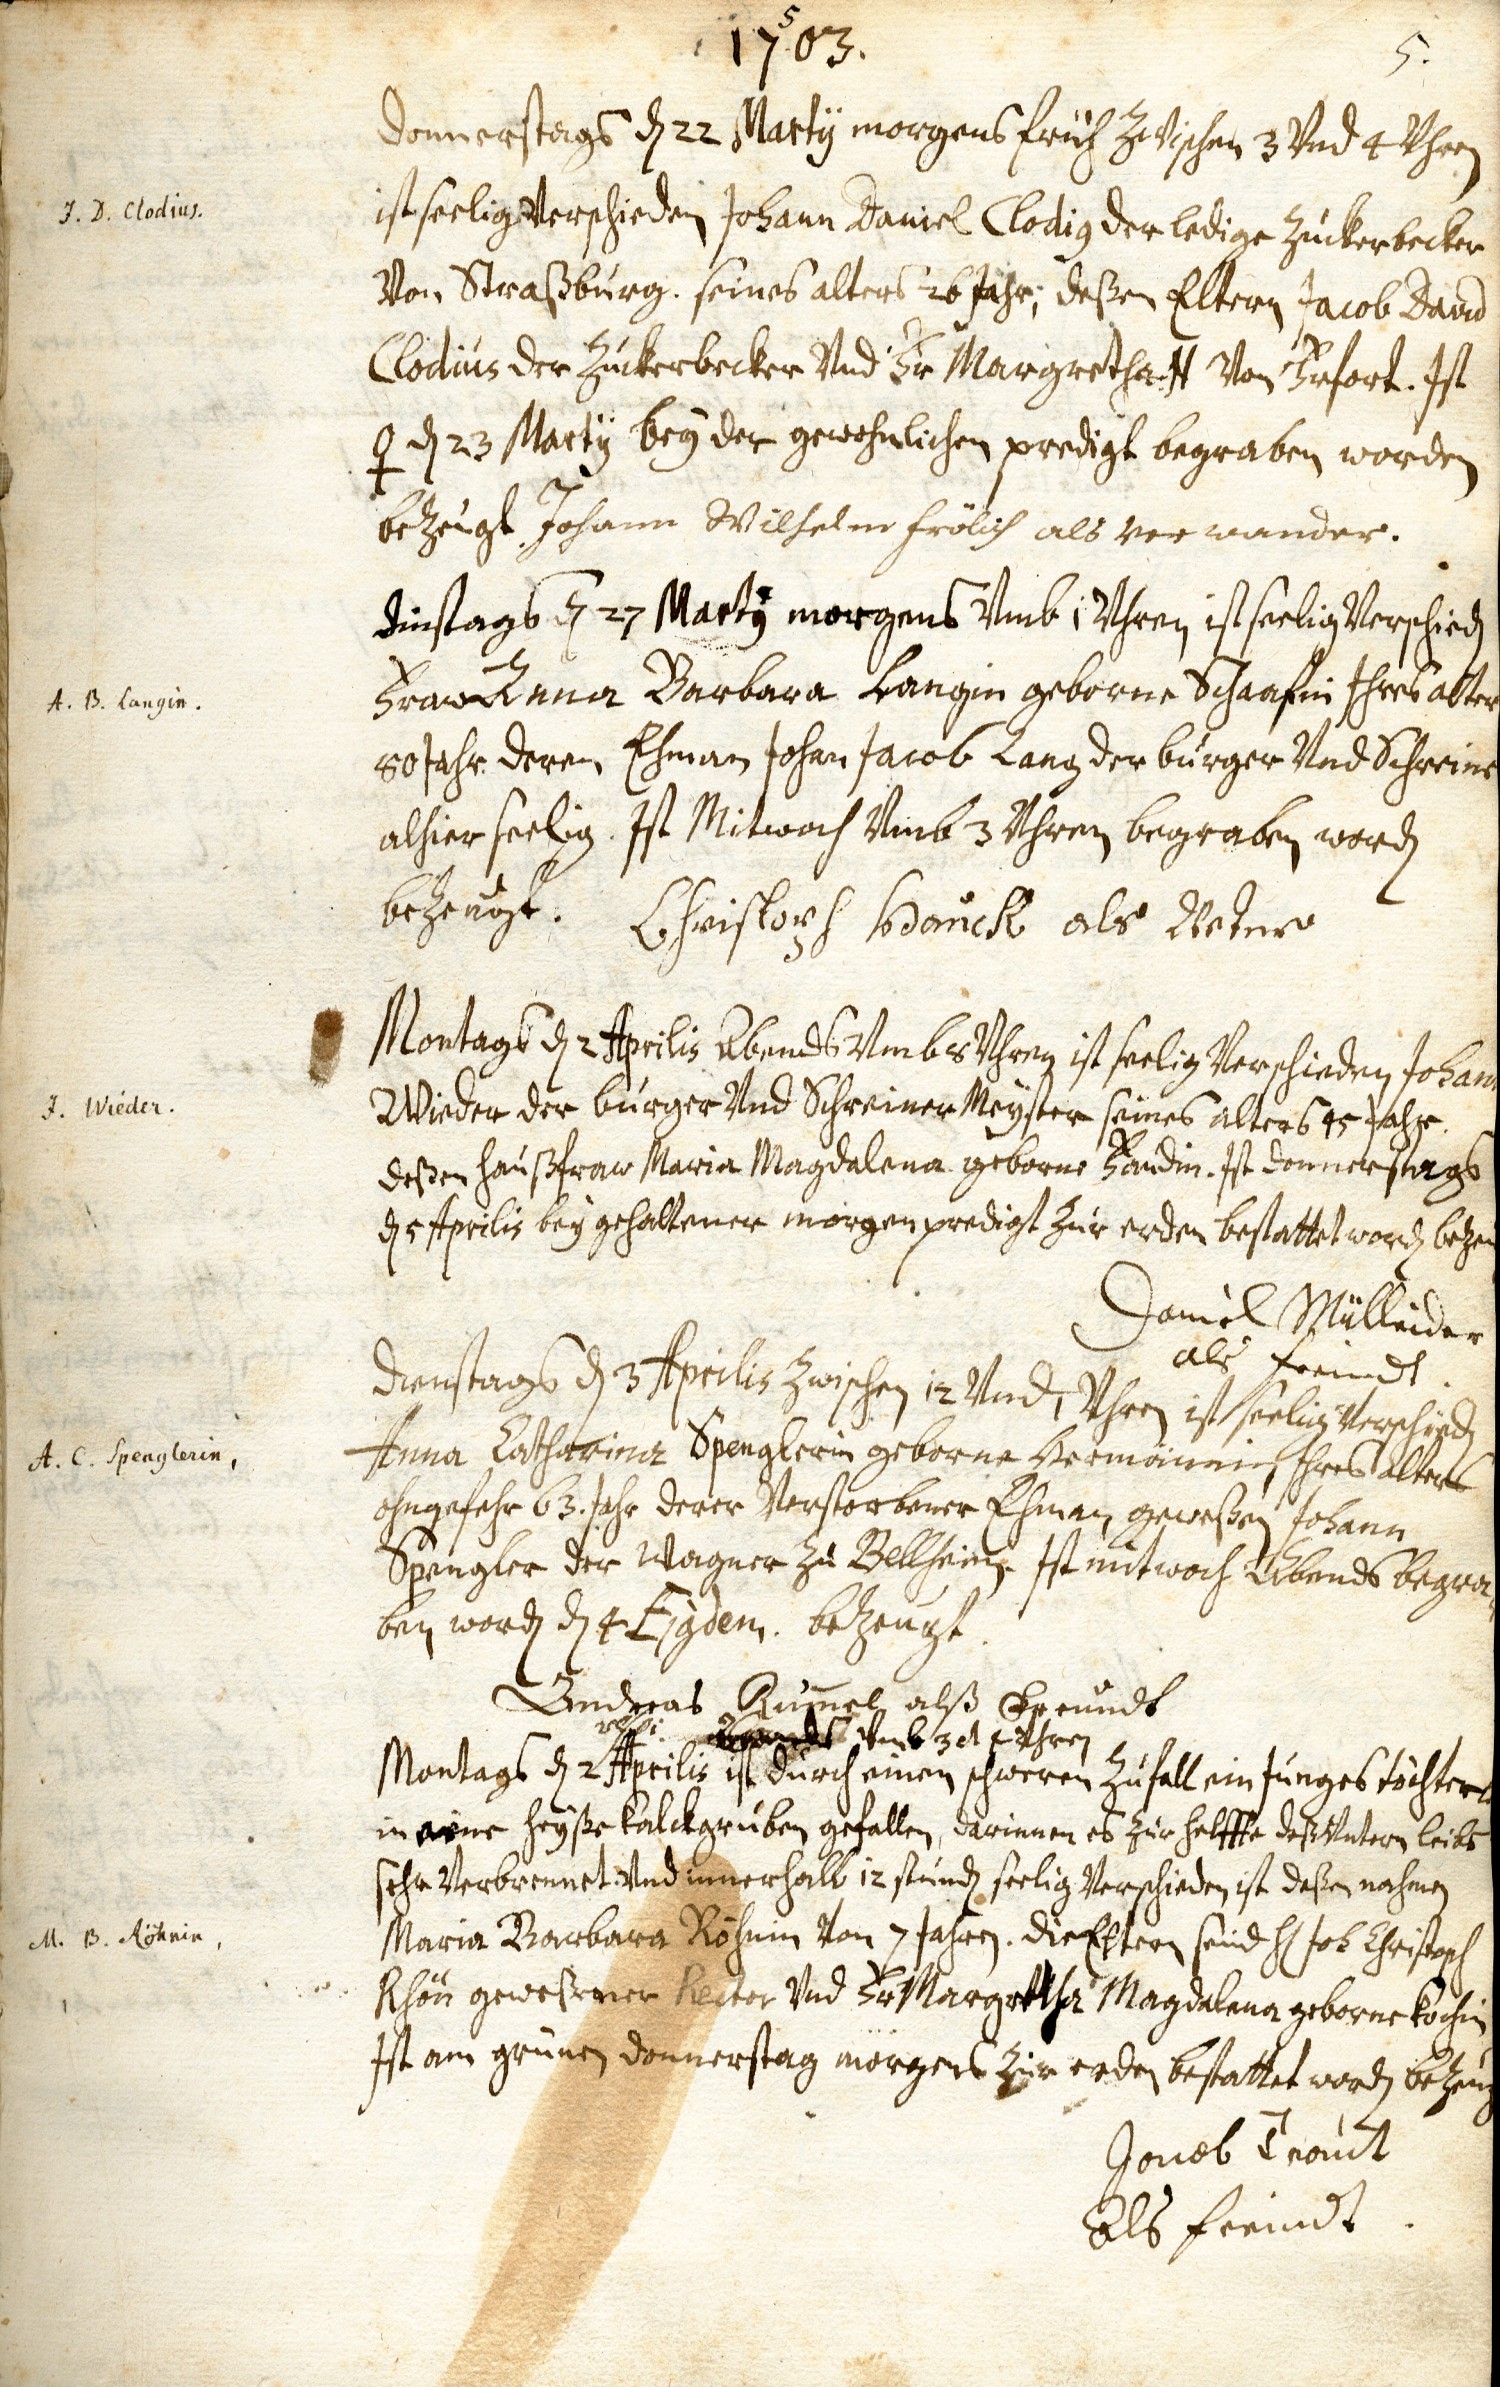 1703.
5
5.
Donnerstags d 22 Martÿ morgens früh zwischen 3 Vnd 4 Vhren
J. D. Clodius.
ist seelig Verschieden Johann Daniel Clodig der ledige Zuckerbecker
Von Straßburg. seines alters 26 Jahr; deßen Eltern Jacob David
Clodius der Zuckerbecker Vnd Fr Margretha Von Erfort. Ist
♀ d 23 Martÿ beÿ der gewohnlichen predigt begraben worden
bezeugt Johann Wilhelm Frölich als verwander.
Dinstags d 27 Martÿ morgens Vmb 1 Vhren ist seelig Verschied
A. B. Langin.
Fraw Anna Barbara Langin geborne Schaafin Ihres alter
80 Jahr deren Ehman Johan Jacob Lang der burger Vnd Schreine
alhier seelig. Ist Mitwoch Vmb 3 Vhren begraben word
bezeugt. Christoph Hauck als
Montags d 2 Aprilis Abends Vmb 8 Vhren ist seelig Verschieden Johann
J. Wieder.
Wieder der burger Vnd Schreiner Meÿster seines alters 45 Jahr.
deßen haußfraw Maria Magdalena geborne Ist Donnerstags
d 5 Aprilis beÿ gehaltener morgen predigt zur erden bestattet word bezeu
Daniel Mülleider
als freindt
Dienstags d 3 Aprilis zwischen 12 Vnd 1 Vhren ist seelig Verschied
A. C. Spenglerin,
Anna Catharina Spenglerin geborne Hermännin, Ihres alters
ohngefehr 63. Jahr derer Verstorbener Ehman geweßen Johann
Spengler der Wagner zu Bellheim. Ist mitwoch Abends begra
ben word d 4 Ejgdem. bezeugt
Andreas Kumel alß Freundt
Vmb 3 Vhren
Montags d 2 Aprilis ist durch einen schweren Zufall ein Junges töchterl
in eine heÿße kalckgruben gefallen, darinnen es zur helffte deß Vntern leibs
sehr Verbrennet Vnd innerhalb 12 stund seelig Verschieden ist deßen nahmen
M. B. Röhnin,
Maria Barbara Röhnin Von 7 Jahren. die Eltern seind H Joh Christoph
Rhön geweßener Rector Vnd Fr Margretha Magdalena geborne Kochin
Ist am grünen Donnerstag morgens zur erden bestattet word bezeug
Jacob Traut
Als freindt